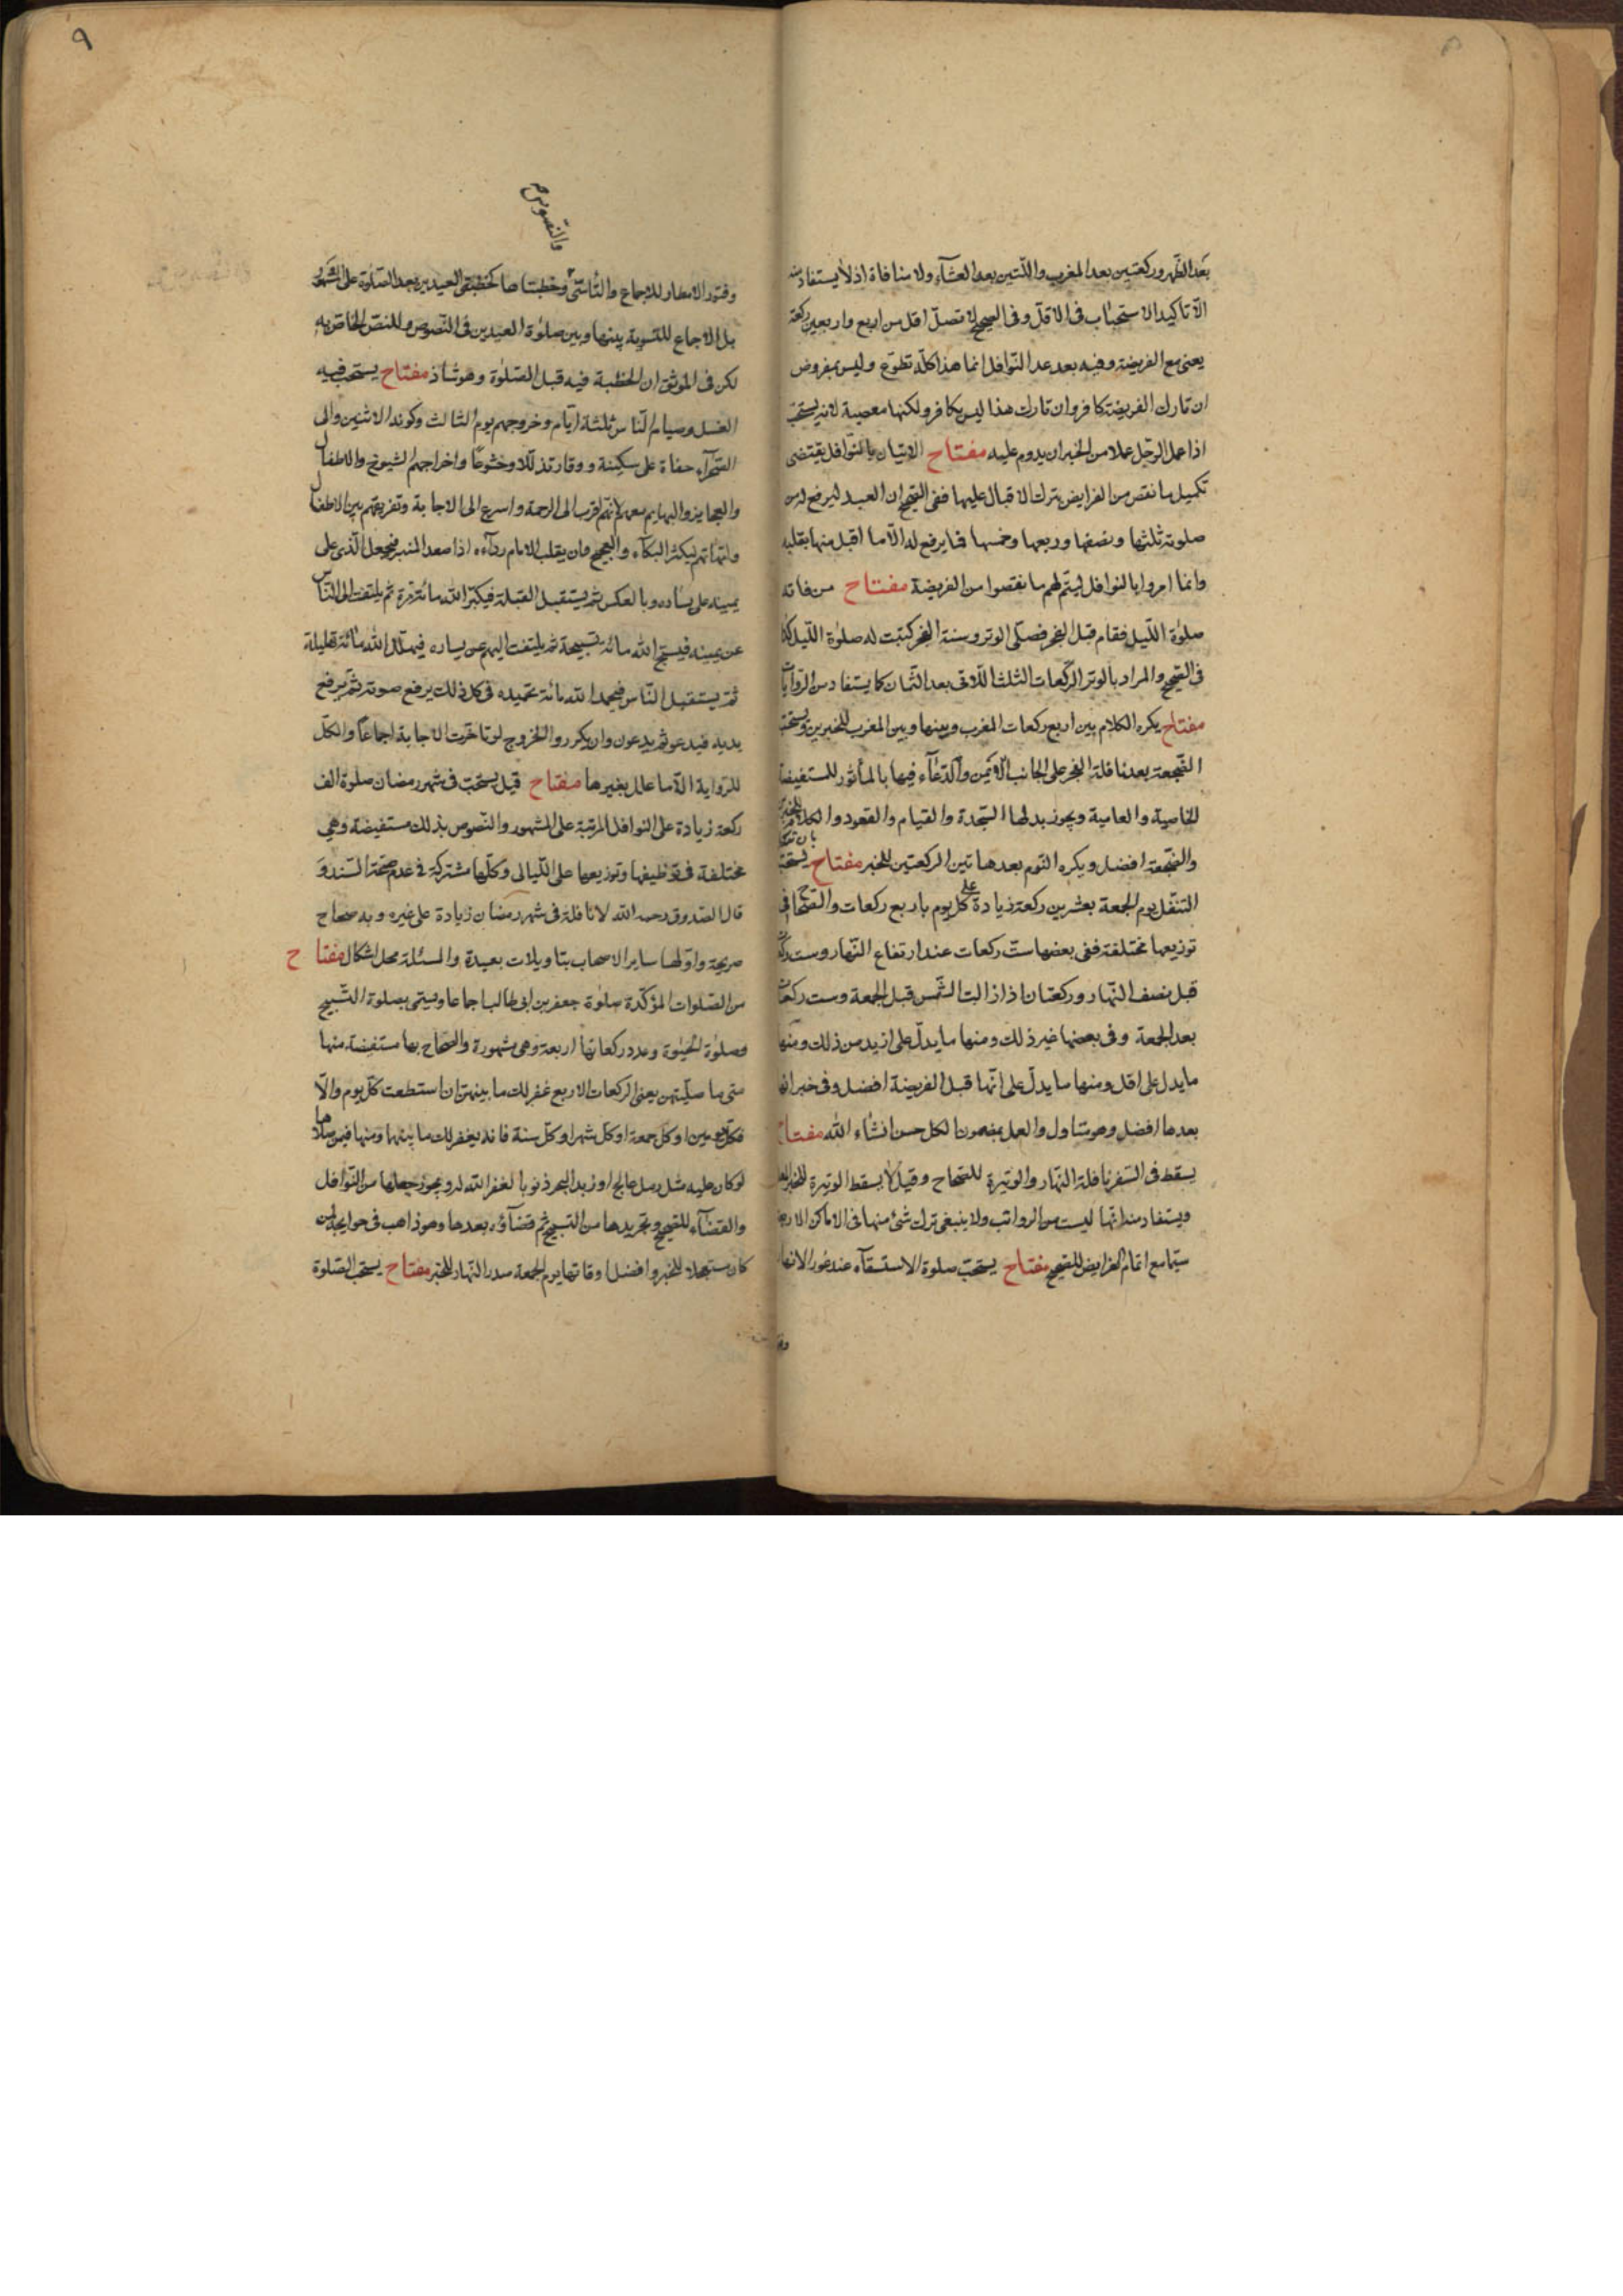 بعد الظهر وركعتين بعد المغرب واللتين بعد العشاء ولا منافاة اذ لا يستفاد منه
الا تاكيد الاستحباب فى الاقل وفى الصحيح لا تصل اقل من اربع واربعين ركعة
يعنى مع الفريضة وفيه بعد عد النوافل انما هذا كله تطوع وليس بمفروض
ان تارك الفريضة كافر وان تارك هذا ليس بكافر ولكنها معصية لانه يستحب
اذا عمل الرجل عملا من الخير ان يدوم عليه مفتاح الاتيان بالنوافل يقتضى
تكميل ما نقص من الفرايض بترك الاقبال عليها ففى الصحيح ان العبد ليرفع له من
صلوته ثلثها ونصفها وربعها وخمسها فما يرفع له الا ما اقبل منها بقلبه
وانما امروا بالنوافل ليتم لهم ما نقصوا من الفريضة مفتاح من فاته
صلوة الليل فقام قبل الفجر فصلى الوتر وسنة الفجر كتبت له صلوة الليل كذا
فى الصحيح والمراد بالوتر الركعات الثلث اللاتى بعد الثمان كما يستفاد من الروايات
مفتاح يكره الكلام بين اربع ركعات المغرب وبينها وبين المغرب للخبرين ويستحب
الضجعة بعد نافلة الفجر على الجانب الايمن والدعاء فيها بالمأثور للمستفيضة
الخاصية والعامية ويجوز بدلها السجدة والقيام والقعود والكلام للخبر
والضجعة افضل ويكره النوم بعد هاتين الركعتين للخبر مفتاح يستحب
التنفل يوم الجمعة بعشرين ركعة زيادة على كل يوم باربع ركعات والصحاح فى
توزيعها مختلفة ففى بعضها ست ركعات عند ارتفاع النهار وست ركعات
قبل نصف النهار وركعتان اذا زالت الشمس قبل الجمعة وست ركعات
بعد الجمعة وفى بعضها غير ذلك ومنها ما يدل على ازيد من ذلك ومنها
ما يدل على اقل ومنها ما يدل على انها قبل الفريضة افضل وفى خبر انها
بعدها افضل وهو متاول والعمل بمضمون الكل حسن انشاء الله مفتاح
يسقط فى السفر نافلة النهار والوتيرة للصحاح وقيل لا يسقط الوتيرة للخبر
ويستفاد منه انها ليست من الرواتب ولا ينبغى ترك شئ منها فى الاماكن الاربعة
سيما مع اتمام الفرايض للصحيح مفتاح يستحب صلوة الاستسقاء عند غور الانهار
٩
والنصوص
وفتور الامطار للاجماع والتأسى وخطبتاها كخطبتى العيدين بعد الصلوة على المشهور
بل الاجماع للتسوية بينها وبين صلوة العيدين فى النصوص وللنص الخاص به
لكن فى الموثق ان الخطبة فيه قبل الصلوة وهو شاذ مفتاح يستحب فيه
الغسل وصيام الناس ثلثة ايام وخروجهم يوم الثالث وكونه الاثنين والى
الصحراء حفاة على سكينة ووقار تذللا وخشوعا واخراجهم الشيوخ والاطفال
والعجايز والبهايم معهم لانهم اقرب الى الرحمة واسرع الى الاجابة وتفريقهم بين الاطفال
وامهاتهم ليكثر البكاء والعجيج وان يقلب الامام رداءه اذا صعد المنبر فيجعل الذى على
يمينه على يساره وبالعكس ثم يستقبل القبلة فيكبر الله مائة مرة ثم يلتفت الى الناس
عن يمينه فيسبح الله مائة تسبيحة ثم يلتفت اليهم عن يساره فيهلل الله مائة تهليلة
ثم يستقبل الناس فيحمد الله مائة تحميده فى كل ذلك يرفع صوته ثم يرفع
يديه فيدعو ثم يدعون وان يكرروا الخروج لو تاخرت الاجابة اجماعا والكل
للرواية الا ما علل بغيرها مفتاح قيل يستحب فى شهر رمضان صلوة الف
ركعة زيادة على النوافل المرتبة على المشهور والنصوص بذلك مستفيضة وهى
مختلفة فى توظيفها وتوزيعها على الليالى وكلها مشتركة فى عدم صحة السند و
قال الصدوق رحمه الله لا نافلة فى شهر رمضان زيادة على غيره وبه صحاح
صريحة واولها ساير الاصحاب بتاويلات بعيدة والمسئلة محل اشكال مفتاح
من الصلوات المؤكدة صلوة جعفر بن ابى طالب اجماعا ويسمى بصلوة التسبيح
وصلوة الحبوة وعدد ركعاتها اربعة وهى مشهورة والصحاح بها مستفيضة منها
متى ما صليتهن يعنى الركعات الاربع غفر لك ما بينهن ان استطعت كل يوم والا
فكل يومين او كل جمعة او كل شهر او كل سنة فانه يغفر لك ما بينهما ومنها فيمن صلاها
لو كان عليه مثل رمل عالج او زبد البحر ذنوبا لغفر الله له ويجوز جعلها من النوافل
والقضاء للصحيح وتجريدها من التسبيح ثم قضاؤه بعدها وهو ذاهب فى حوايجه لمن
كان مستعجلا للخبر وافضل اوقاتها يوم الجمعة صدر النهار للخبر مفتاح يستحب الصلوة